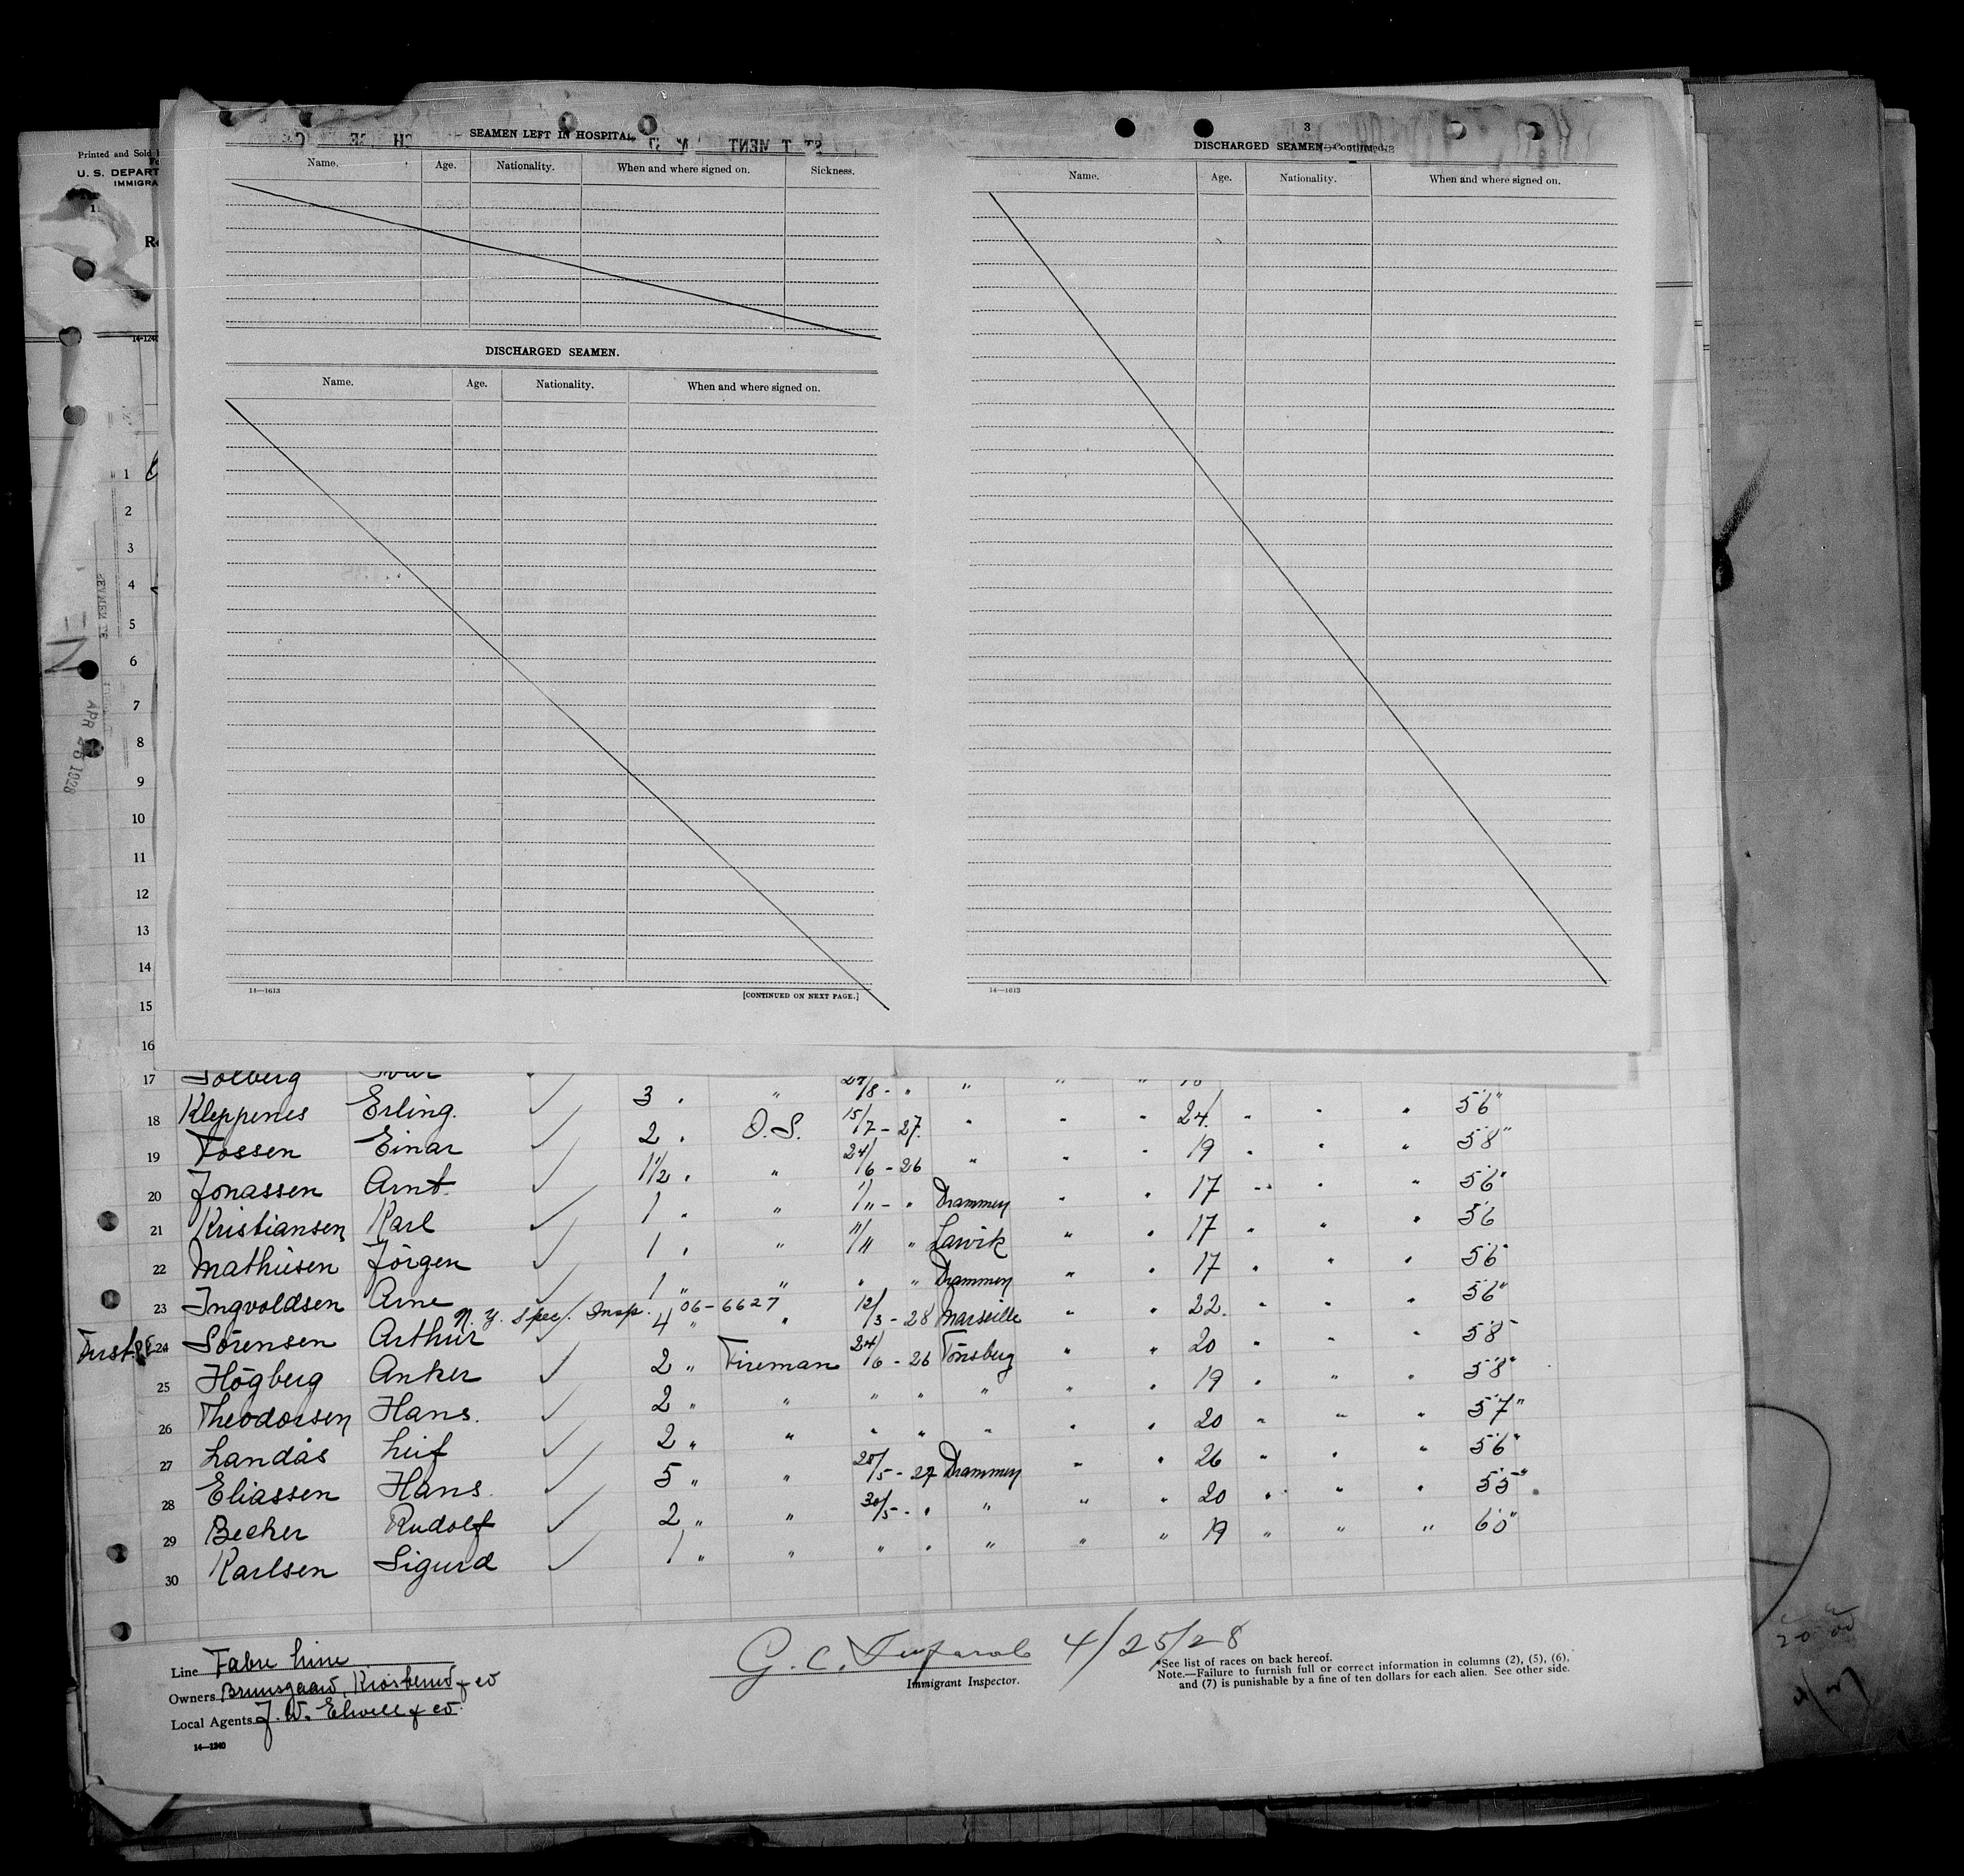 Printed and Sold
U. S. DEPART
IMMIGRA
14-1240
SEAMEN LEFT IN HOSPITAL
Name. Age. Nationality. When and where signed on. Sickness.
DISCHARGED SEAMEN.
Name. Age. Nationality. When and where signed on.
14—1613 [CONTINUED ON NEXT PAGE.]
3
DISCHARGED SEAMEN—Continued.
Name. Age. Nationality. When and where signed on.
14—1613
APR 25 1928
1
2
3
4
5
6
7
8
9
10
11
12
13
14
15
16
17 Solberg 3 " " 27/8 - " "
18 Kleppenes Erling. ✓ 2 " O.S. 15/7 - 27. " " " 24. " " " 5'6"
19 Fossen Einar ✓ 1 1/2 " " 24/6 - 26 " " " 19 " " " 5'8"
20 Jonassen Arnt. ✓ 1 " " 1/11 - " Drammen " " 17 " " " 5'6"
21 Kristiansen Karl ✓ 1 " " 11/11 " Larvik " " 17 " " " 5'6
22 Mathiesen Jörgen ✓ 1 " " " " Drammen " " 17 " " " 5'6"
23 Ingvoldsen Arne 4 " " 12/3 - 28 Marseille " " 22. " " " 5'6"
N. Y. Spec. Insp. 06-6627
First 24 Sörensen Arthur ✓ 2 " Fireman 24/6 - 26 Tönsberg " " 20 " " " 5'8"
25 Högberg Anker ✓ 2 " " " " " " " 19 " " " 5'8"
26 Theodorsen Hans. ✓ 2 " " " " " " " 20 " " " 5'7"
27 Landås Leif ✓ 5 " " 28/5 - 27 Drammen " " 26 " " " 5'6"
28 Eliassen Hans. ✓ 2 " " 30/5 - " " " " 20 " " " 5'5"
29 Becker Rudolf ✓ 1 " " " " " " " 19 " " " 6'0"
30 Karlsen Sigurd ✓
Line Fabre Line
Owners Bruusgaard, Kiosterud & co
Local Agents J. W. Elwell & co.
14—1240
G. C. 4/25/28
Immigrant Inspector.
*See list of races on back hereof.
Note.—Failure to furnish full or correct information in columns (2), (5), (6),
and (7) is punishable by a fine of ten dollars for each alien. See other side.